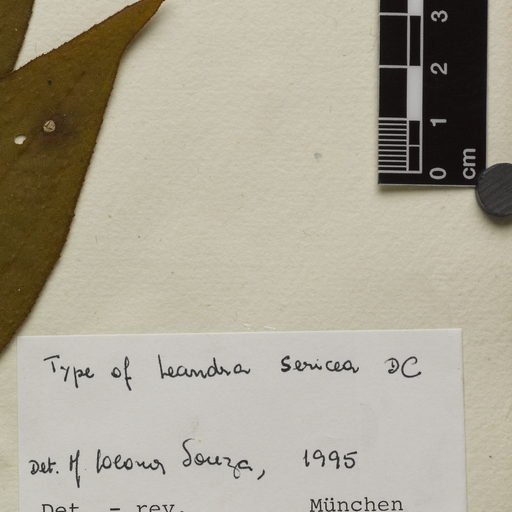 3
2
1
0
cm
Type of Leandra sericea DC
Det. M Souza, 1995
Det. - rev. München